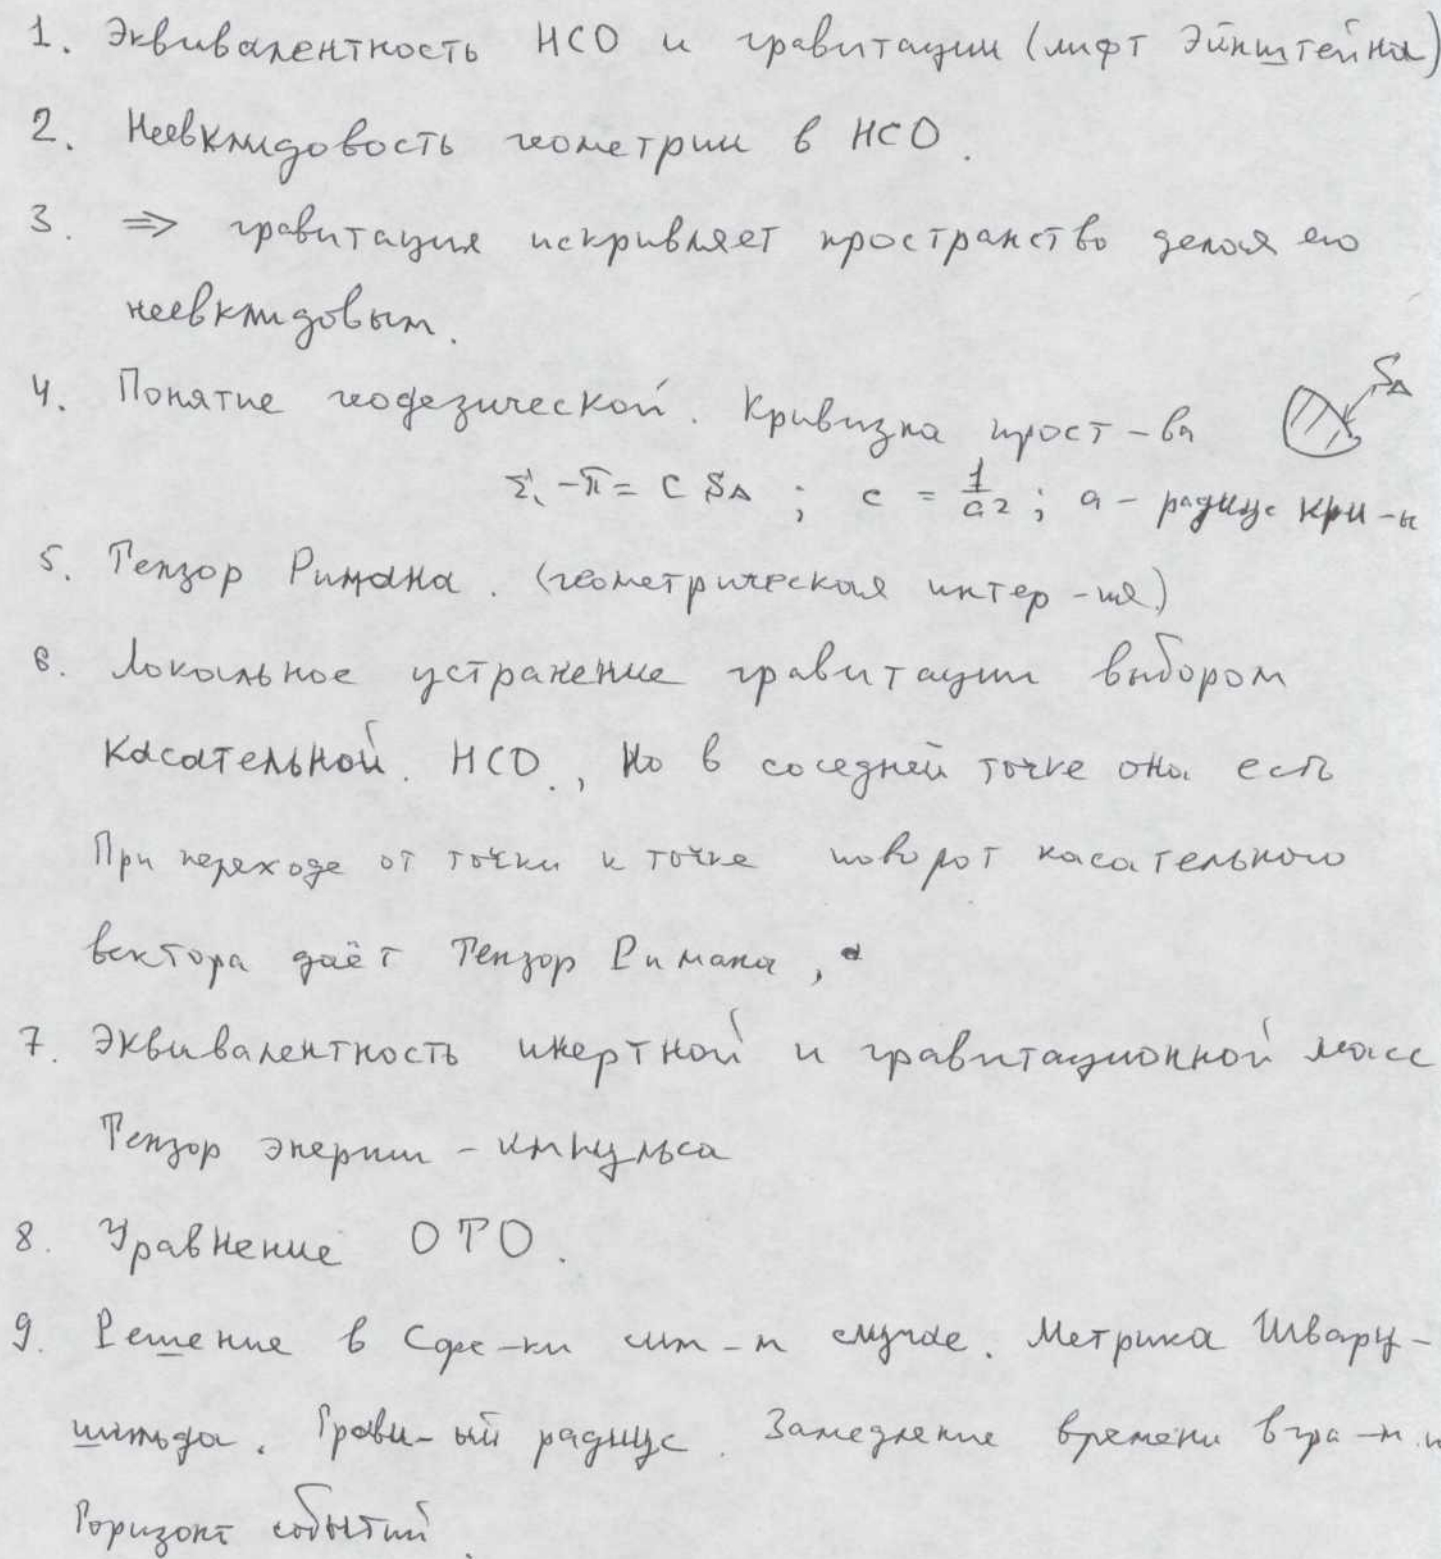 1. Эквивалентность НСО и гравитации (лифт Эйнштейна)
2. Неевклидовость геометрии в НСО.
3. ⇒ гравитация искривляет пространство делая его
неевклидовым.
4. Понятие геодезической. Кривизна прост-ва S∆
Σ - π = C S∆ ; c = 1/a2 ; a - радиус кри-ы
5. Тензор Римана. (геометрическая интер-ия)
6. Локальное устранение гравитации выбором
касательной. НСО., Но в соседней точке она есть
При переходе от точки к точке поворот касательного
вектора даёт Тензор Римана,
7. Эквивалентность инертной и гравитационной масс
Тензор энергии - импульса
8. Уравнение ОТО.
9. Решение в Сфе-ки сим-м случае. Метрика Шварц-
шильда. Грави-ый радиус. Замедление времени в гра-м п
Горизонт событий.